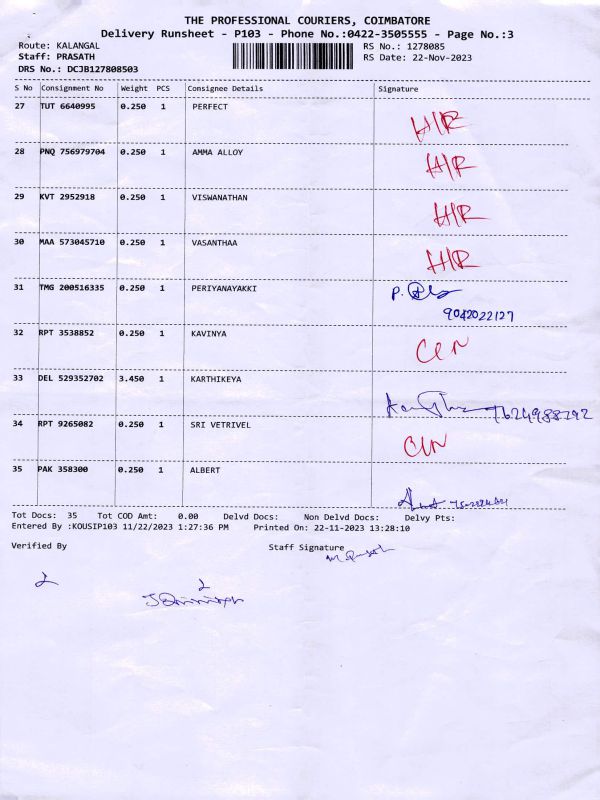 THE PROFESSIONAL COURIERS, COIMBATORE
Delivery Runsheet - P103 - Phone No.:0422-3505555 - Page No.:3
Route: KALANGAL RS No.: 1278085
Staff: PRASATH RS Date: 22-Nov-2023
DRS No.: DCJB127808503
S No Consignment No Weight PCS Consignee Details Signature
27 TUT 6640995 0.250 1 PERFECT
H/R
28 PNQ 756979704 0.250 1 AMMA ALLOY
H/R
29 KVT 2952918 0.250 1 VISWANATHAN
H/R
30 MAA 573045710 0.250 1 VASANTHAA
H/R
31 TMG 200516335 0.250 1 PERIYANAYAKKI
P.
9042022127
32 RPT 3538852 0.250 1 KAVINYA
33 DEL 529352702 3.450 1 KARTHIKEYA
34 RPT 9265082 0.250 1 SRI VETRIVEL
35 PAK 358300 0.250 1 ALBERT
Tot Docs: 35 Tot COD Amt: 0.00 Delvd Docs: Non Delvd Docs: Delvy Pts:
Entered By :KOUSIP103 11/22/2023 1:27:36 PM Printed On: 22-11-2023 13:28:10
Verified By Staff Signature